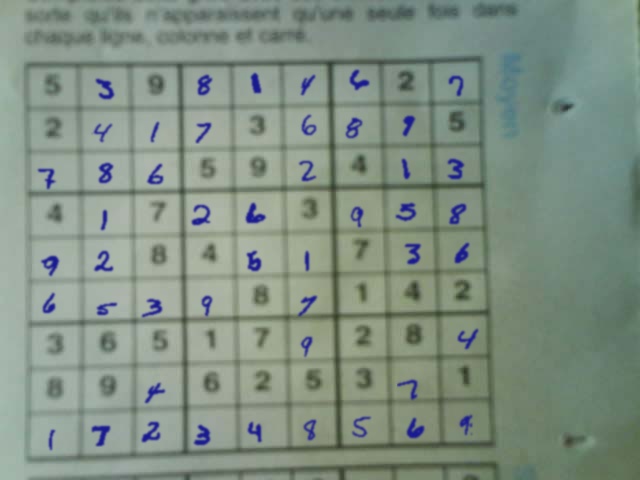 sorte qu'ils n'apparaissent qu'une seule fois dans
chaque ligne, colonne et carré.
Moyen
5 3 9 8 1 4 6 2 7
2 4 1 7 3 6 8 9 5
7 8 6 5 9 2 4 1 3
4 1 7 2 6 3 9 5 8
9 2 8 4 5 1 7 3 6
6 5 3 9 8 7 1 4 2
3 6 5 1 7 9 2 8 4
8 9 4 6 2 5 3 7 1
1 7 2 3 4 8 5 6 9